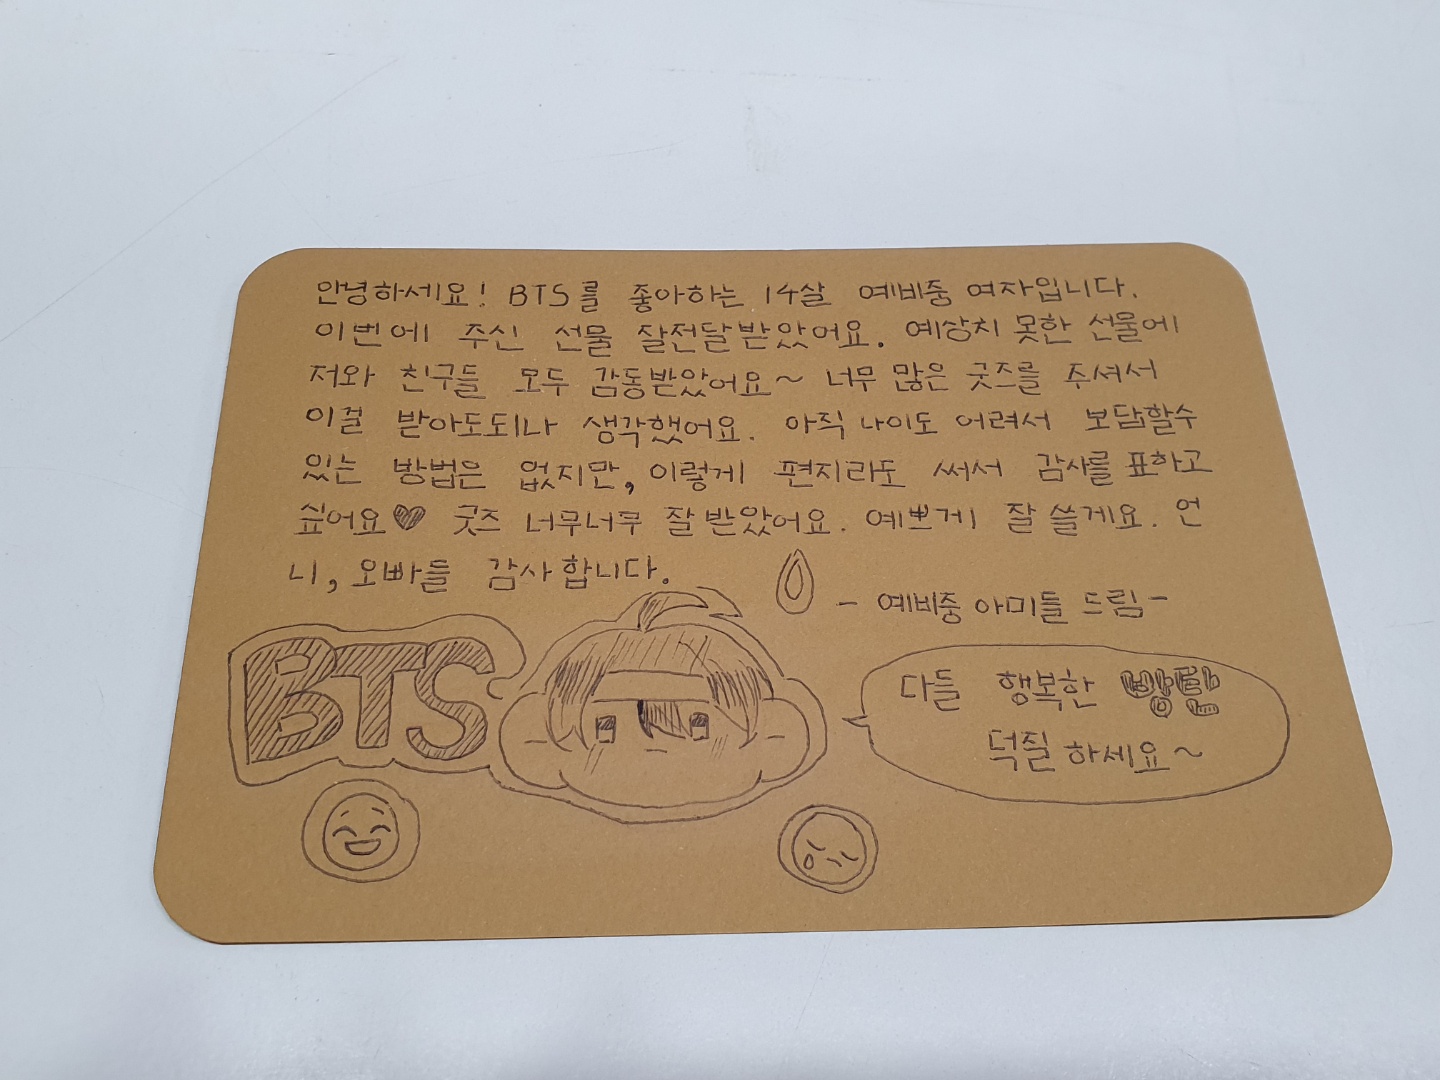 안녕하세요! BTS를 좋아하는 14살 예비중 여자입니다.
이번에 주신 선물 잘전달받았어요. 예상치 못한 선물에
저와 친구들 모두 감동받았어요~ 너무 많은 굿즈를 주셔서
이걸 받아도되나 생각했어요. 아직 나이도 어려서 보답할수
있는 방법은 없지만, 이렇게 편지라도 써서 감사를 표하고
싶어요♥ 굿즈 너무너무 잘 받았어요. 예쁘게 잘 쓸게요. 언
니, 오빠들 감사합니다.
- 예비중 아미들 드림-
BTS
다들 행복한 방탄
덕질 하세요~